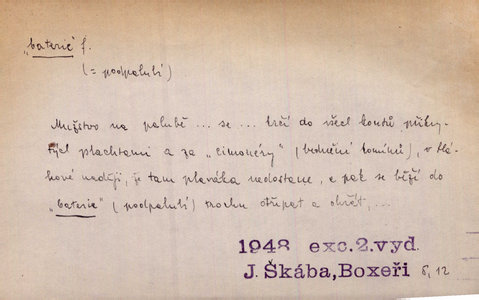 „baterie" f.
(= podpalubí)
Mužstvo na palubě ... se ... krčí do všech koutů, přikry-
tých plachtami a za „cimonéry" (bednění komínů), v dě-
kové naději, že tam plaváka nedostane, a pak se běží do
„baterie" (podpalubí) trochu otřepat a ohřát, ...
1948 exc. 2. vyd.
J. Škába, Boxeři 5, 12